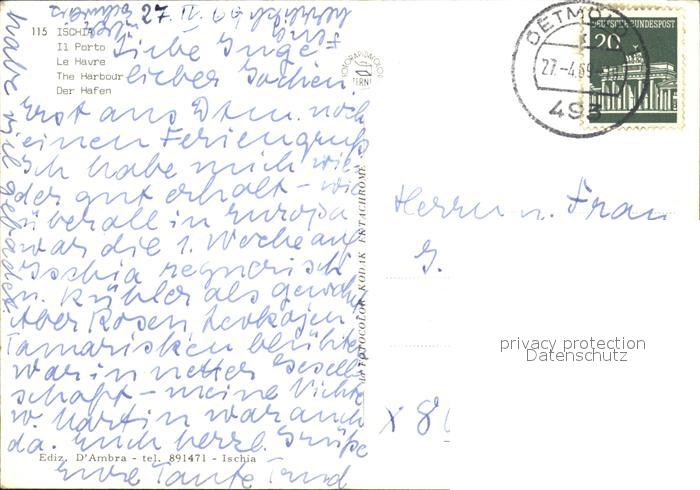 27. IV. 69
115 ISCHIA
Il Porto
Le Havre
The Harbour
Der Hafen
Liebe Inge +
lieber Jochen!
Erst aus Dtm. noch
einen Feriengruß
Ich habe mich wie-
der gut erholt – wie
überall in Europa
war die 1. Woche auf
Ischia regnerisch
u. kühler als gewohnt
Aber Rosen, Levkojen,
Tamarisken blühten
war in netter Gesell-
schaft – meine Nichte
v. Martin war auch
da. Euch herzl. Grüße
Eure Tante Trud
habe viel gebadet
Ediz. D'Ambra - tel. 891471 - Ischia
FOTOCOLOR KODAK EKTACHROME
DETMOLD
27.-4.69
493
DEUTSCHE BUNDESPOST
20
Herrn u. Frau
G.
x 8
privacy protection
Datenschutz